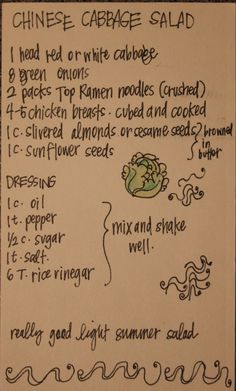 CHINESE CABBAGE SALAD
1 head red or white cabbage
8 green onions
2 packs Top Ramen noodles (crushed)
4-5 chicken breasts - cubed and cooked
1 c. slivered almonds or sesame seeds
1 c. sunflower seeds
browned in butter
DRESSING
1 c. oil
1 t. pepper
1/2 c. sugar
1 t. salt
6 T. rice vinegar
mix and shake well.
really good light summer salad